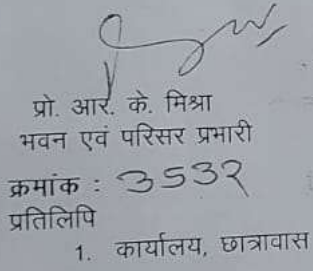 प्रो. आर. के. मिश्रा
भवन एवं परिसर प्रभारी
क्रमांक : 3532
प्रतिलिपि
1. कार्यालय, छात्रावास